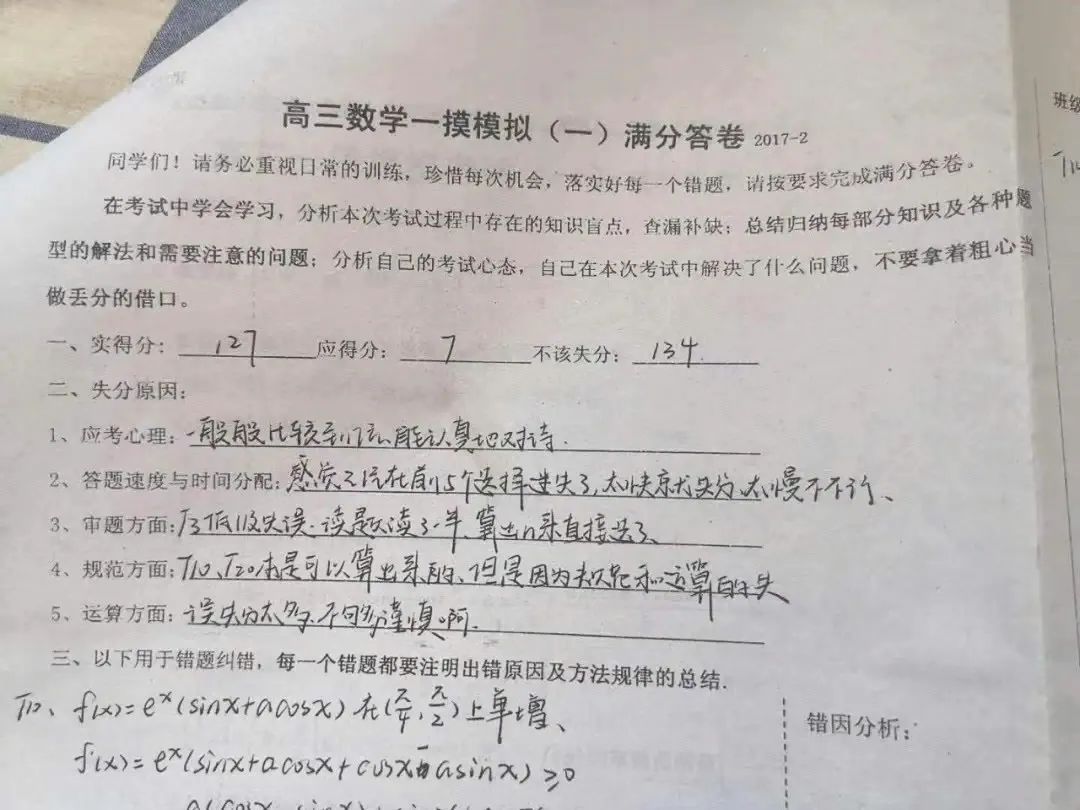 高三数学一摸模拟（一）满分答卷 2017-2
同学们！请务必重视日常的训练，珍惜每次机会，落实好每一个错题，请按要求完成满分答卷。
在考试中学会学习，分析本次考试过程中存在的知识盲点，查漏补缺；总结归纳每部分知识及各种题
型的解法和需要注意的问题；分析自己的考试心态，自己在本次考试中解决了什么问题，不要拿着粗心当
做丢分的借口。
一、实得分： 127 应得分： 7 不该失分： 134
二、失分原因：
1、应考心理：一般般比较 能认真地对待.
2、答题速度与时间分配：感觉 在前15个选择 失了,太快 失分,太慢不行、
3、审题方面：T3低级失误.读题读了一半、算出n来直接 了、
4、规范方面：T10、T20本是可以算出来的、但是因为 和运算的失
5、运算方面：误失分太多.不够谨慎啊.
三、以下用于错题纠错，每一个错题都要注明出错原因及方法规律的总结.
T10、f(x)=eˣ(sinx+acosx)在(π/4,π/2)上单增、
f'(x)=eˣ(sinx+acosx+cosx-asinx)≥0
错因分析：
班级